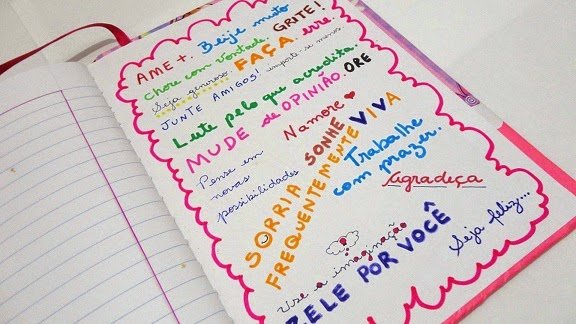 AME+. Beije muito
Chore com vontade. GRITE!
Seja generoso. FAÇA. erre.
JUNTE AMIGOS! importe-se menos
Lute pelo que acredita.
MUDE de OPINIÃO. ORE
Pense em
novas
possibilidades
Namore
SORRIA SONHE VIVA
FREQUENTEMENTE
Trabalhe
com prazer.
Agradeça
Use a imaginação
ZELE POR VOCÊ
Seja feliz...